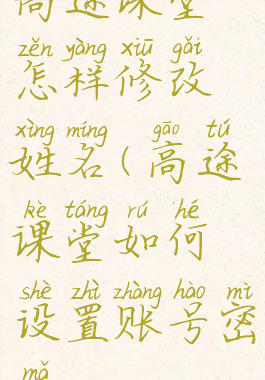 高途课堂
zěn yàng xiū gǎi
怎样修改
xìng míng gāo tú
姓名(高途
kè táng rú hé
课堂如何
shè zhì zhàng hào mì
设置账号密
mǎ